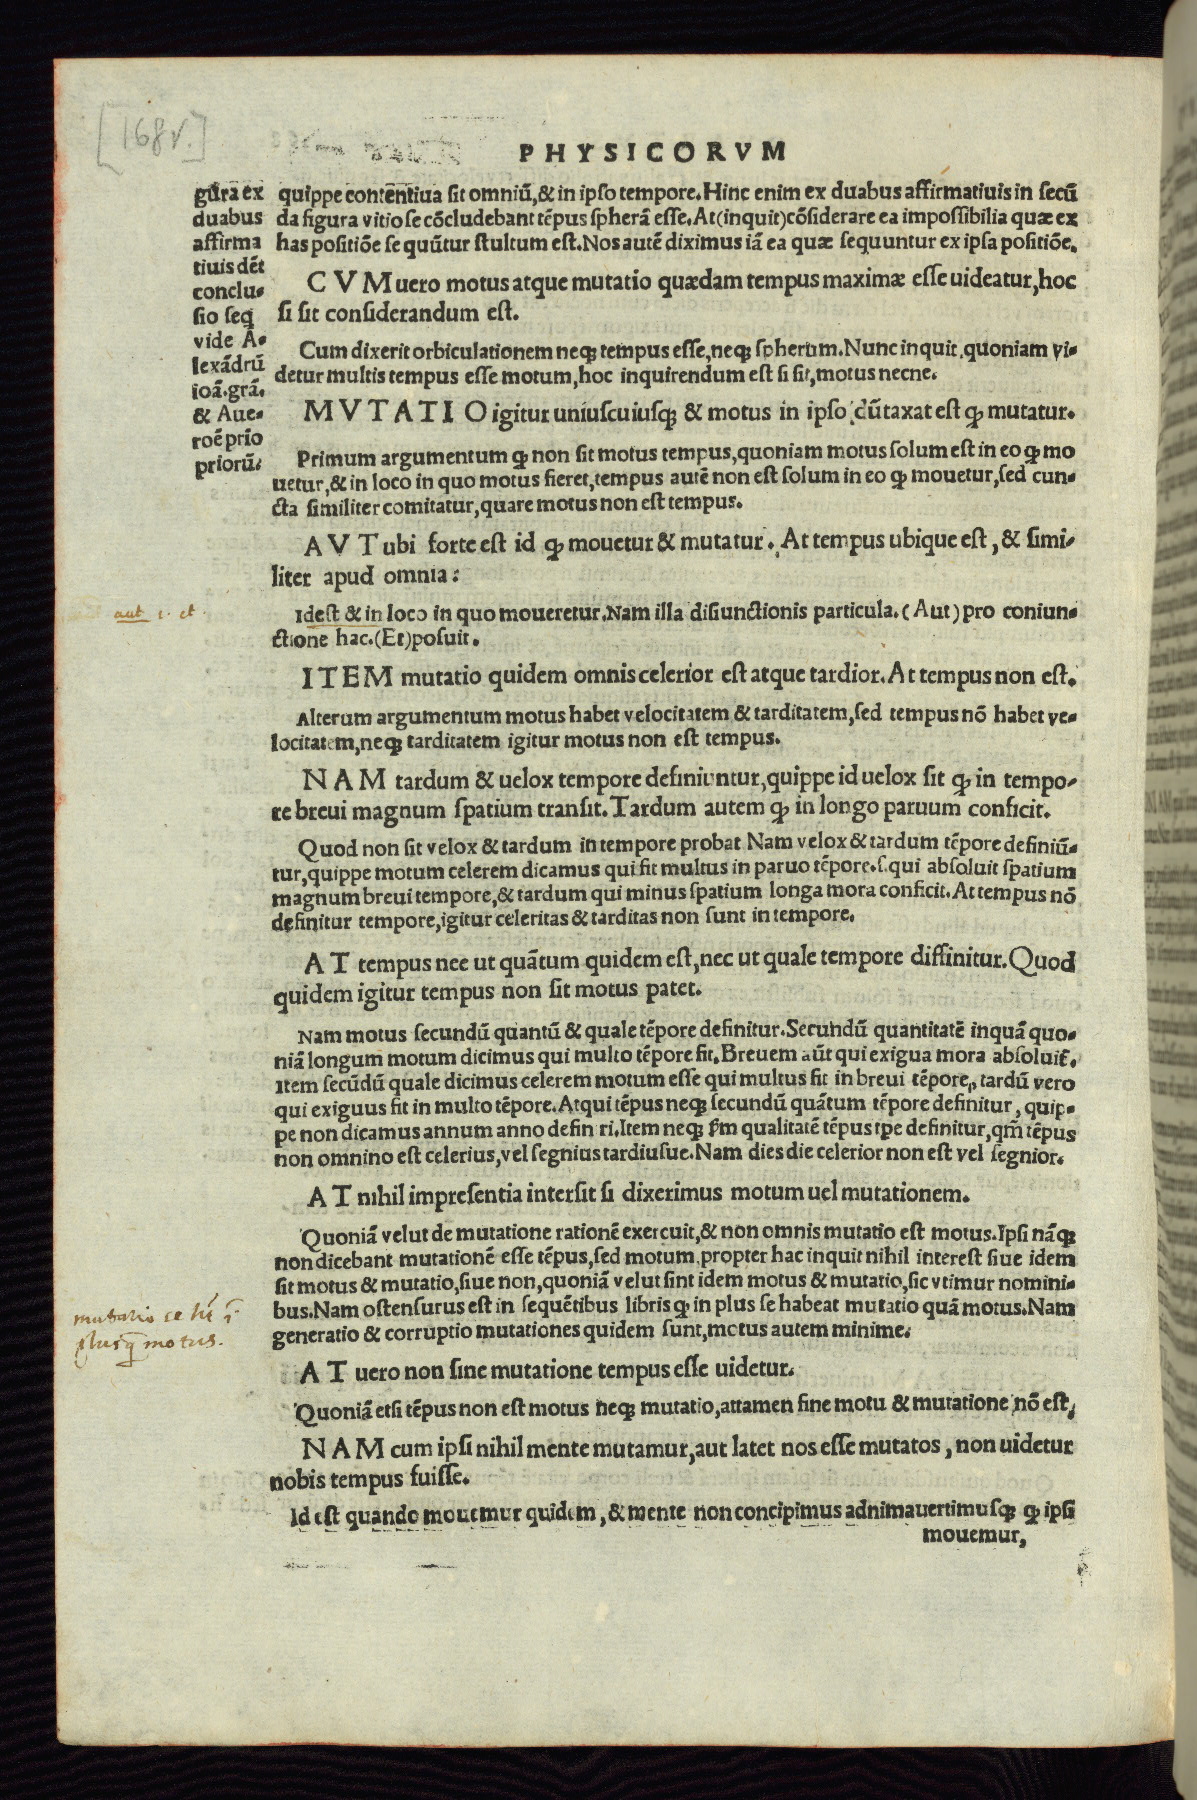 [168v.]
PHYSICORVM
gũra ex
duabus
affirma
tiuis dẽt
conclu-
sio seq̃
vide A-
lexãdrũ
ioã. grã.
& Aue-
roẽ prio
priorũ:
quippe contentiua sit omniũ, & in ipso tempore. Hinc enim ex duabus affirmatiuis in secũ
da figura vitiose cõcludebant tẽpus spherã esse. At (inquit) cõsiderare ea impossibilia quæ ex
has positiõe sequũtur stultum est. Nos autẽ diximus iã ea quæ sequuntur ex ipsa positiõe.
CVM uero motus atque mutatio quædam tempus maximæ esse uideatur, hoc
si sit considerandum est.
Cum dixerit orbiculationem neqʒ tempus esse, neqʒ spherum. Nunc inquit, quoniam vi-
detur multis tempus esse motum, hoc inquirendum est si sit, motus necne.
MVTATIO igitur uniuscuiusqʒ & motus in ipso dũtaxat est ꝙ mutatur.
Primum argumentum ꝙ non sit motus tempus, quoniam motus solum est in eo ꝙ mo
uetur, & in loco in quo motus fieret, tempus autẽ non est solum in eo ꝙ mouetur, sed cun-
cta similiter comitatur, quare motus non est tempus.
AVT ubi forte est id ꝙ mouetur & mutatur. At tempus ubique est, & simi-
liter apud omnia:
aut .i. et.
Idest & in loco in quo moueretur. Nam illa disiunctionis particula. (Aut) pro coniun-
ctione hac. (Et) posuit.
ITEM mutatio quidem omnis celerior est atque tardior. At tempus non est.
Alterum argumentum motus habet velocitatem & tarditatem, sed tempus nõ habet ve-
locitatem, neqʒ tarditatem igitur motus non est tempus.
NAM tardum & uelox tempore definiuntur, quippe id uelox sit ꝙ in tempo-
re breui magnum spatium transit. Tardum autem ꝙ in longo paruum conficit.
Quod non sit velox & tardum in tempore probat Nam velox & tardum tẽpore definiũ-
tur, quippe motum celerem dicamus qui fit multus in paruo tẽpore. s. qui absoluit spatium
magnum breui tempore, & tardum qui minus spatium longa mora conficit. At tempus nõ
definitur tempore, igitur celeritas & tarditas non sunt in tempore.
AT tempus nec ut quãtum quidem est, nec ut quale tempore diffinitur. Quod
quidem igitur tempus non sit motus patet.
Nam motus secundũ quantũ & quale tẽpore definitur. Secundũ quantitatẽ inquã quo-
niã longum motum dicimus qui multo tẽpore fit. Breuem aũt qui exigua mora absoluit.
Item secũdũ quale dicimus celerem motum esse qui multus fit in breui tẽpore, tardũ vero
qui exiguus fit in multo tẽpore. Atqui tẽpus neqʒ secundũ quãtum tẽpore definitur, quip-
pe non dicamus annum anno definiri. Item neqʒ s̃m qualitatẽ tẽpus tp̃e definitur, qm̃ tẽpus
non omnino est celerius, vel segnius tardiusue. Nam dies die celerior non est vel segnior.
AT nihil impresentia intersit si dixerimus motum uel mutationem.
Quoniã velut de mutatione rationẽ exercuit, & non omnis mutatio est motus. Ipsi nãqʒ
non dicebant mutationẽ esse tẽpus, sed motum, propter hac inquit nihil interest siue idem
sit motus & mutatio, siue non, quoniã velut sint idem motus & mutatio, sic vtimur nomini-
bus. Nam ostensurus est in sequẽtibus libris ꝙ in plus se habeat mutatio quã motus. Nam
generatio & corruptio mutationes quidem sunt, motus autem minime.
mutatio se ht̃ ĩ
plusq̃ motus.
AT uero non sine mutatione tempus esse uidetur.
Quoniã etsi tẽpus non est motus neqʒ mutatio, attamen sine motu & mutatione nõ est,
NAM cum ipsi nihil mente mutamur, aut latet nos esse mutatos, non uidetur
nobis tempus fuisse.
Id est quando mouemur quidem, & mente non concipimus adnimauertimusqʒ ꝙ ipsi
mouemur,